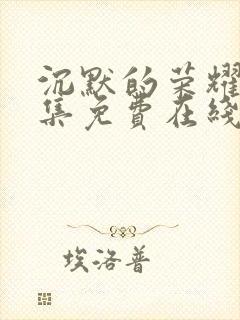 沉默的荣耀
集免费在线
埃洛普